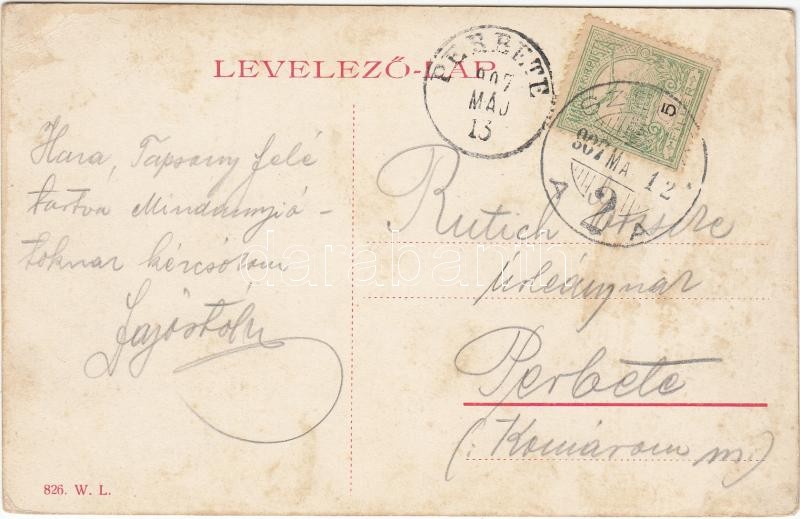 LEVELEZŐ-LAP
PERBETE
907
MÁJ
13
5
907 MA 12
A 2 A
Haza, Tapsony felé
tartva Mindannyió-
toknak kézcsókom
Lajostól
Rutich
Úrleánynak
Perbete
(: Komárom m)
826. W. L.
darabanth